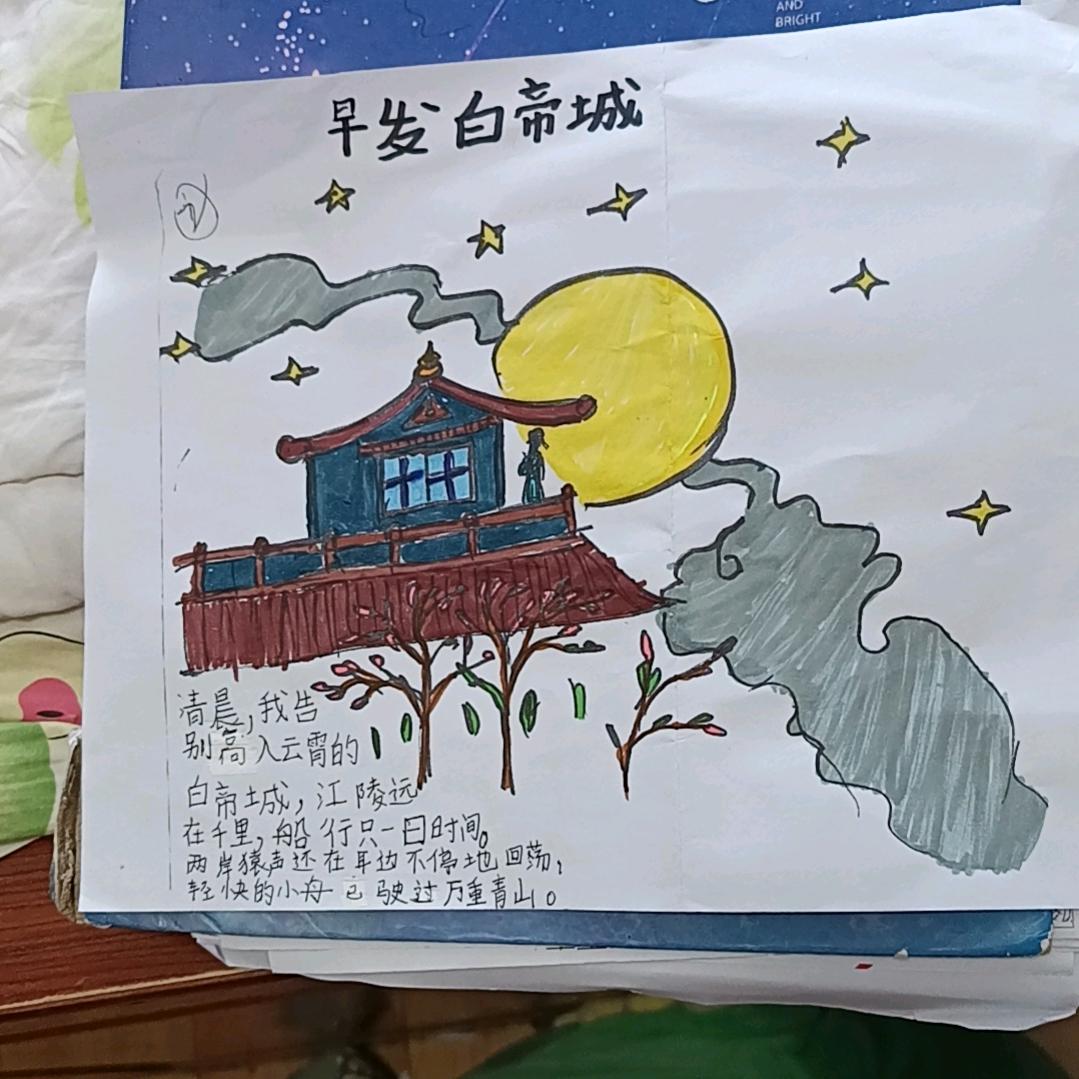 AND
BRIGHT
早发白帝城
清晨,我告
别高入云霄的
白帝城,江陵远
在千里,船行只一日时间。
两岸猿声还在耳边不停地回荡,
轻快的小舟已驶过万重青山。